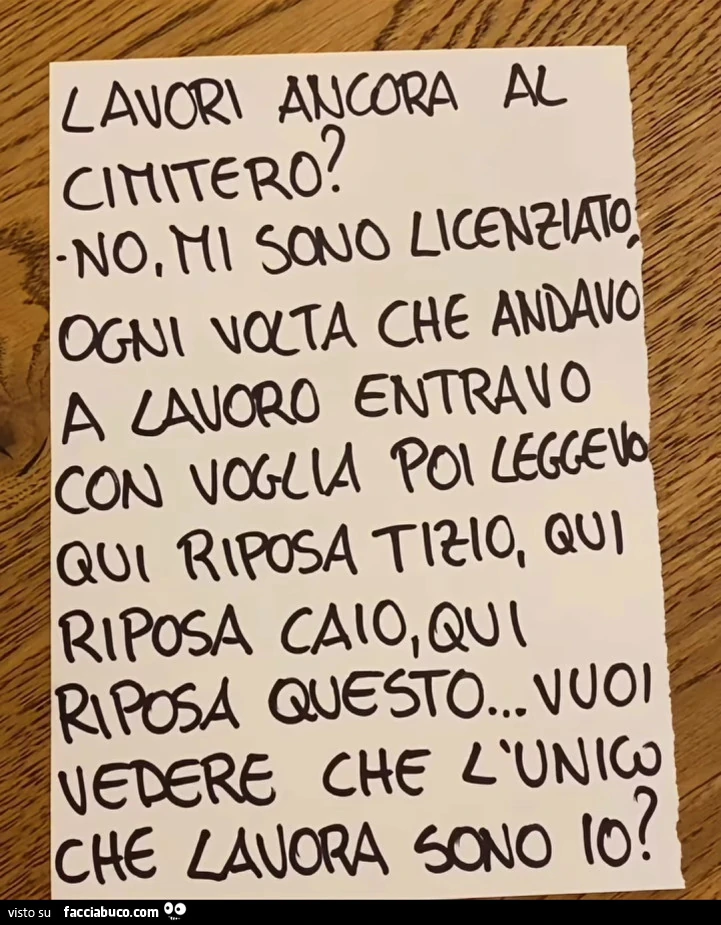 LAVORI ANCORA AL
CIMITERO?
-NO, MI SONO LICENZIATO,
OGNI VOLTA CHE ANDAVO
A LAVORO ENTRAVO
CON VOGLIA POI LEGGEVO
QUI RIPOSA TIZIO, QUI
RIPOSA CAIO, QUI
RIPOSA QUESTO... VUOI
VEDERE CHE L'UNICO
CHE LAVORA SONO IO?
visto su facciabuco.com